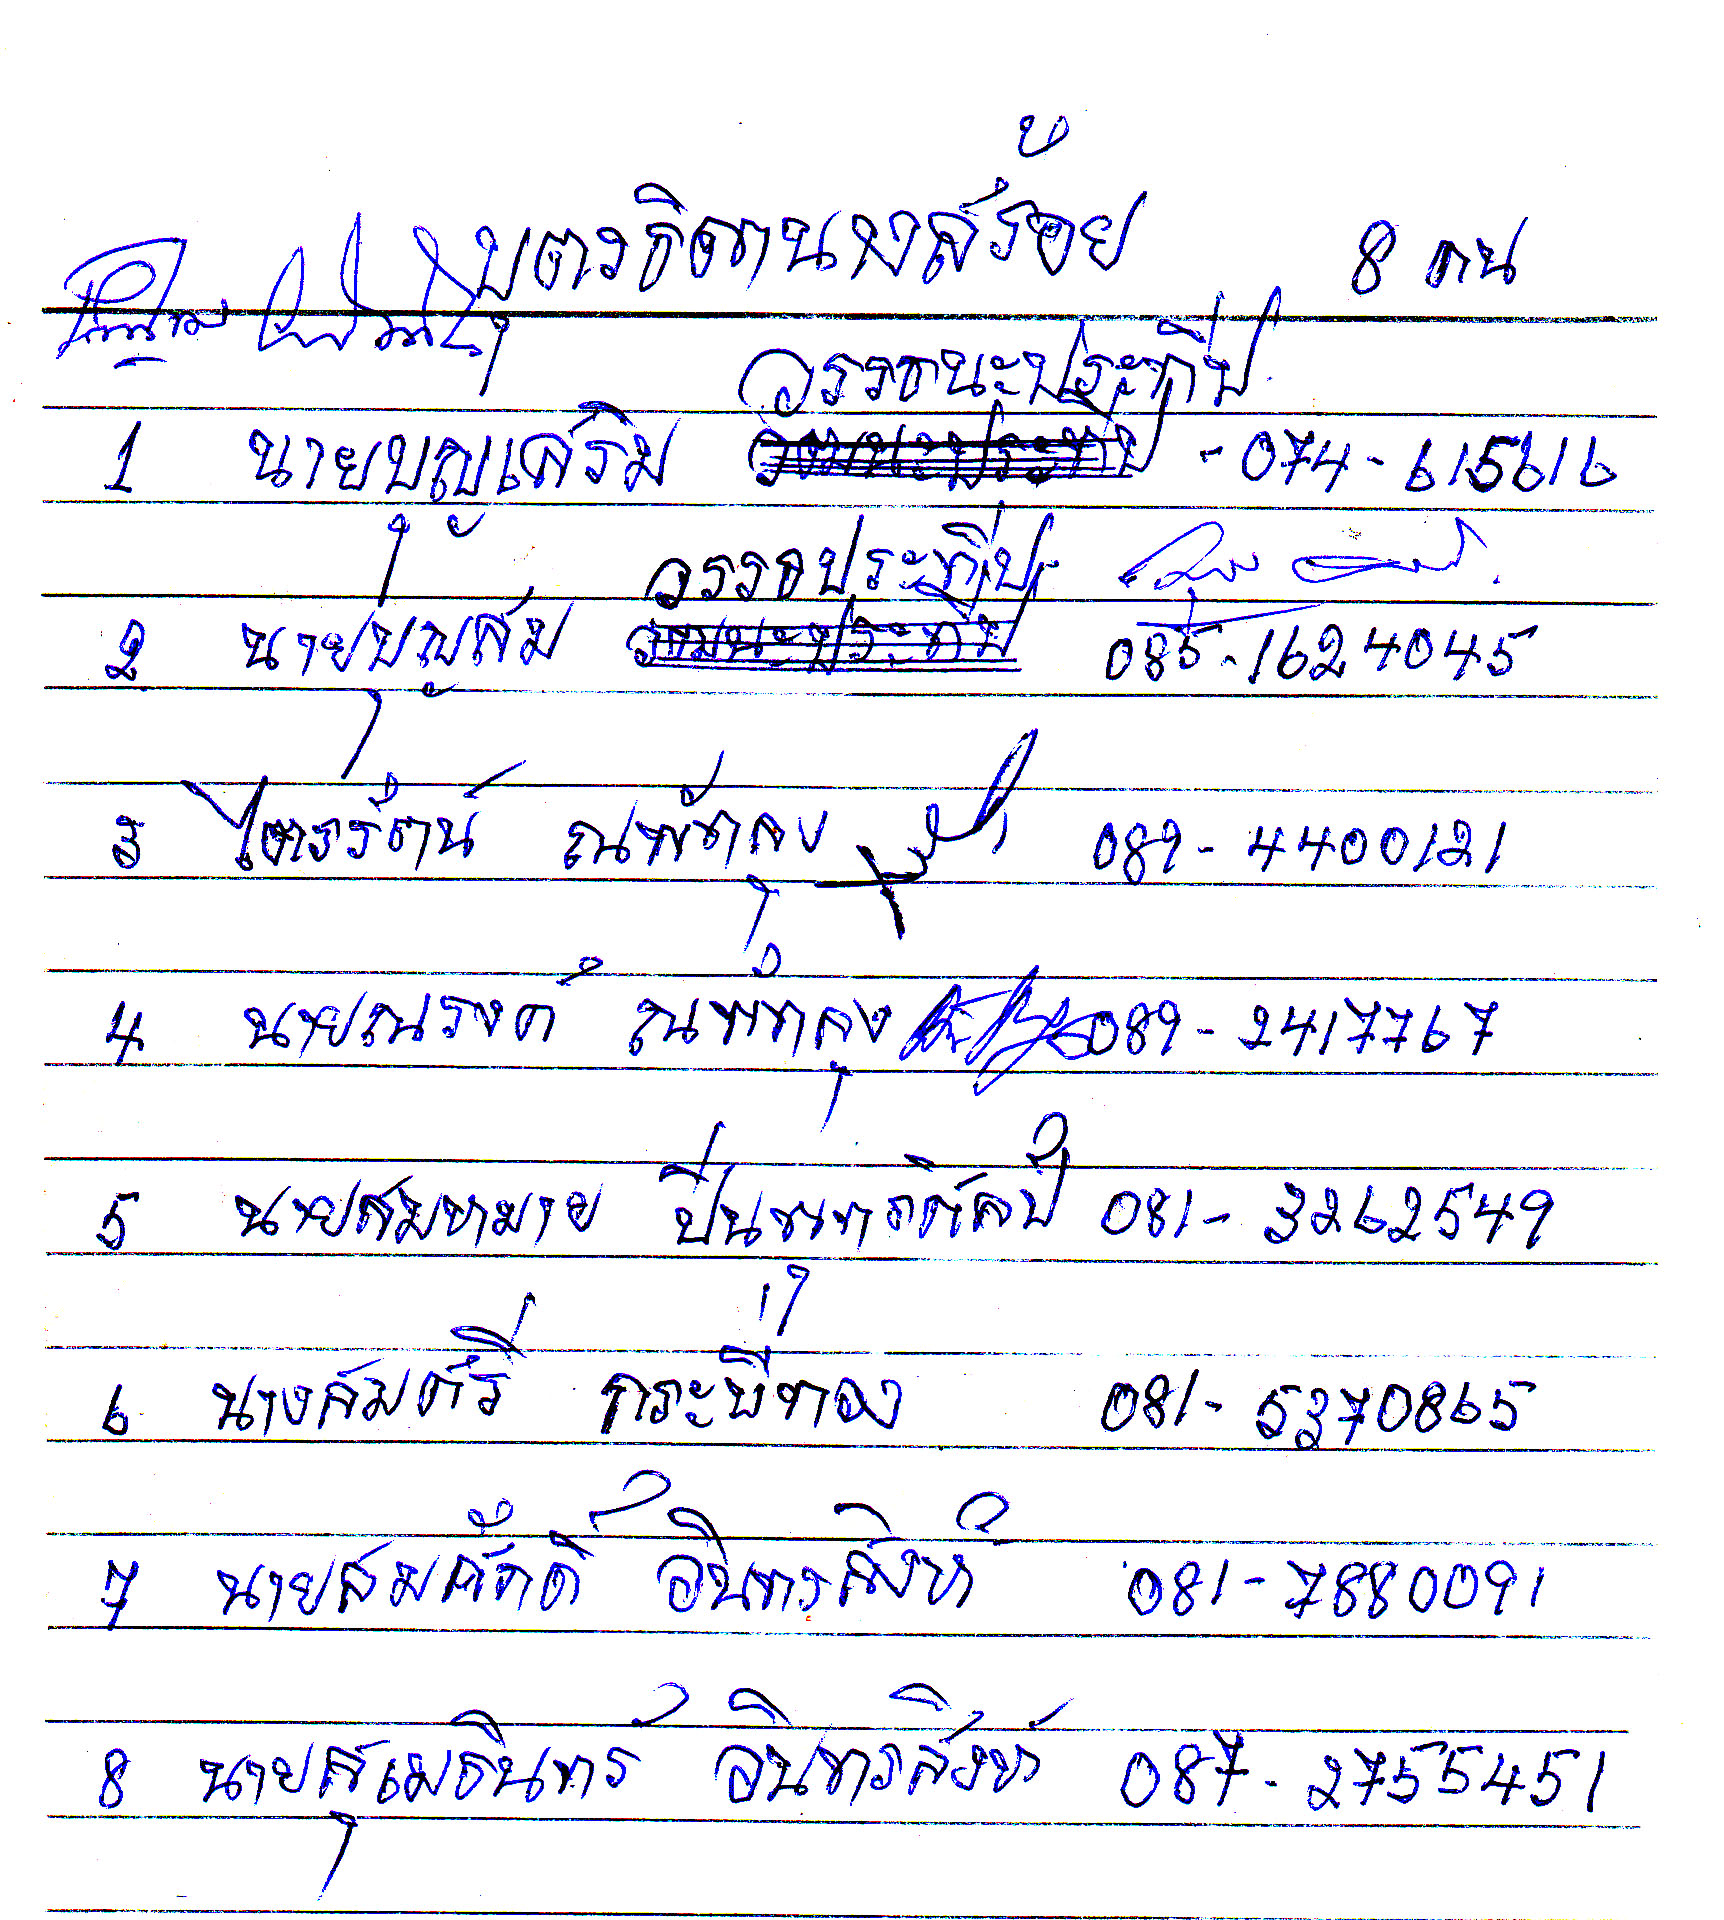 บุตรธิดานางสร้อย 8 คน
วรรธนะประทีป
1 นายบุญเสริม - 074-615616
วรรธประทีป
2 นายบุญสม 085-1624045
3 ไตรรัตน์ ณพัทลุง 089-4400121
4 นายณรงค์ ณพัทลุง 089-2417767
5 นายสมหมาย 081-3262549
6 นางสมศรี กระบี่ทอง 081-5370865
7 นายสมศักดิ์ อินทรสิงห์ 081-7880091
8 นายสุเมธินทร์ อินทรสิงห์ 087-2755451